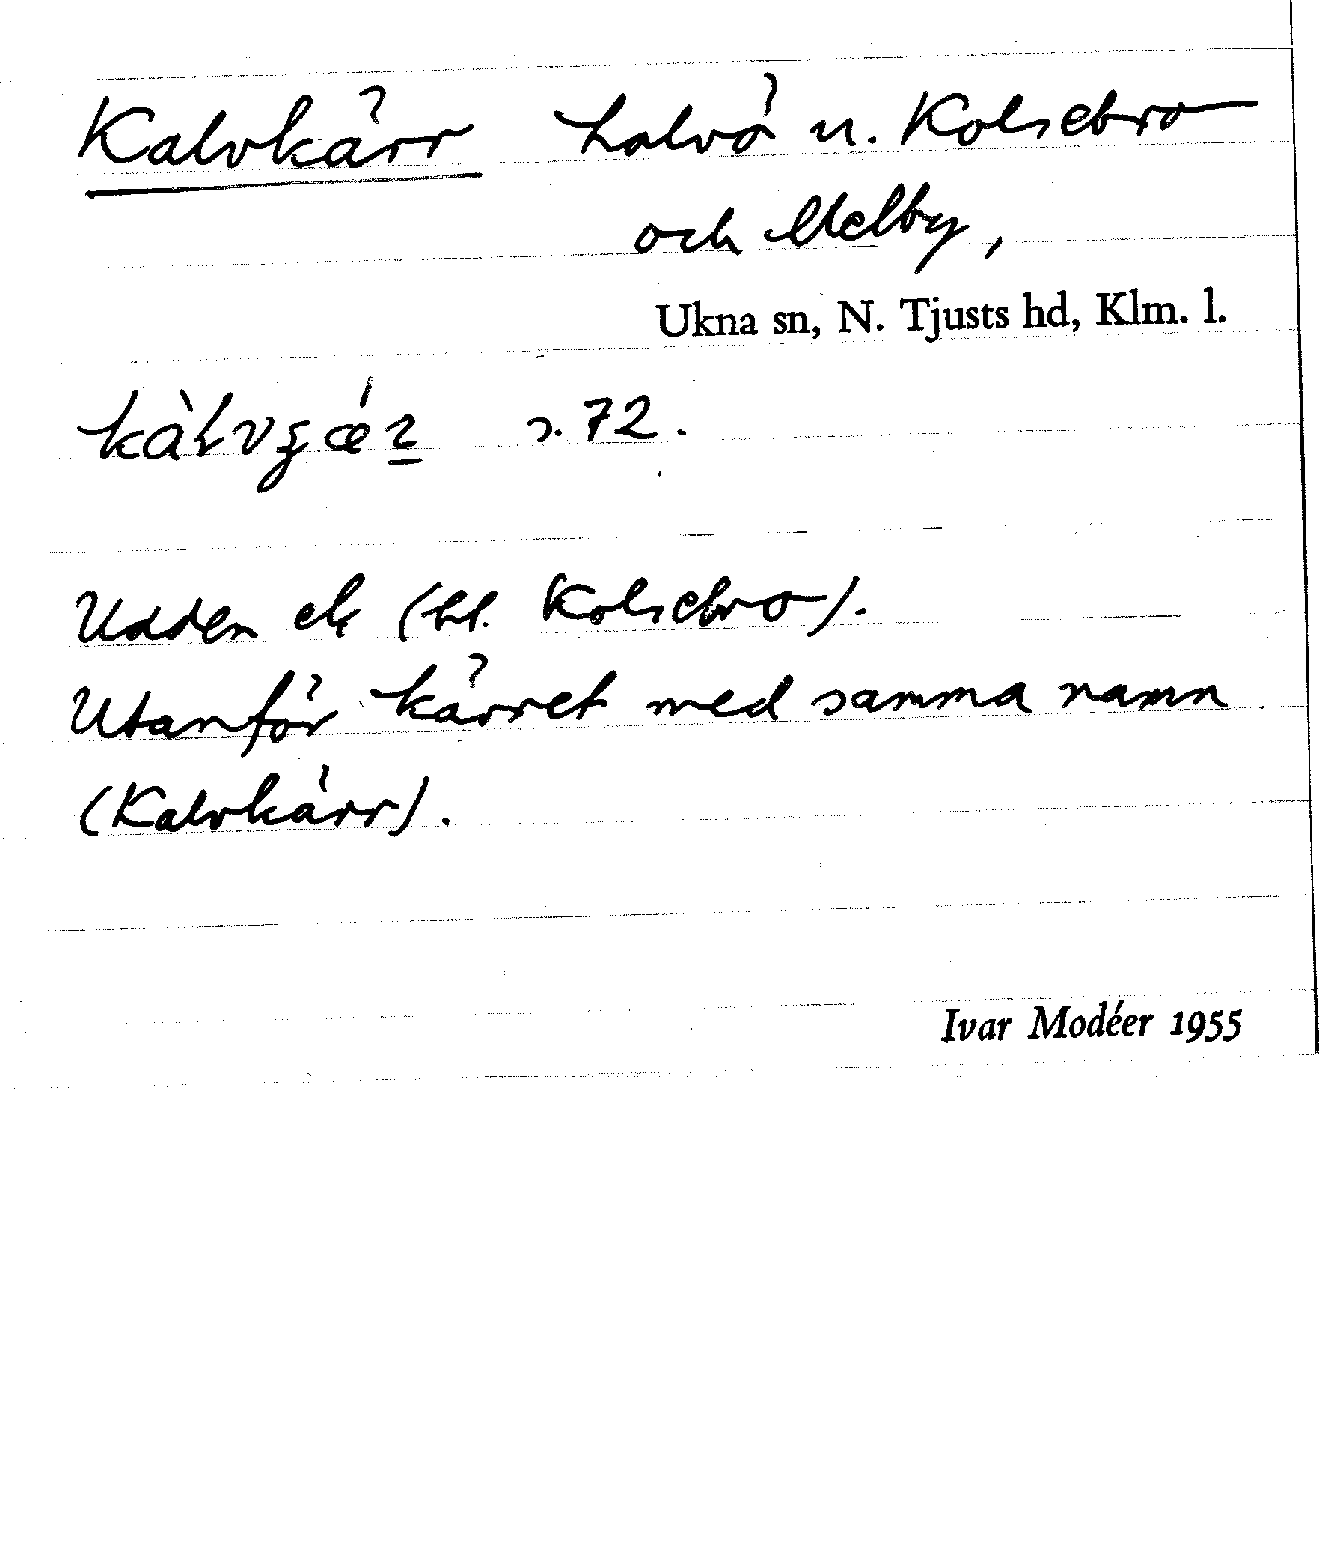 Kalvkärr halvö u. Kolsebro
och Melby,
Ukna sn, N. Tjusts hd, Klm. l.
s. 72.
Udden ek (bl. Kolsebro).
Utanför kärret med samma namn
(Kalvkärr).
Ivar Modéer 1955